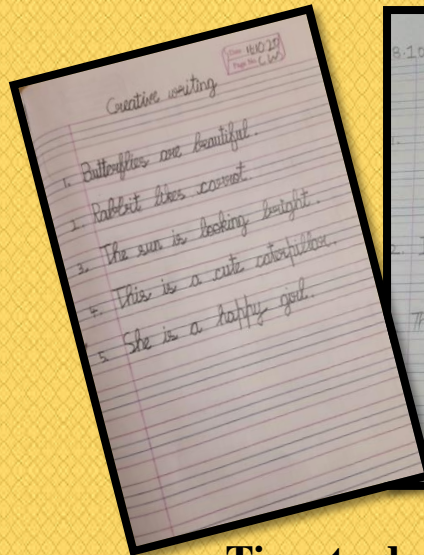 Date 11.10.21
Page No. C.W
Creative writing
1. Butterflies are beautiful.
2. Rabbit likes carrot.
3. The sun is looking bright.
4. This is a cute caterpillar.
5. She is a happy girl.